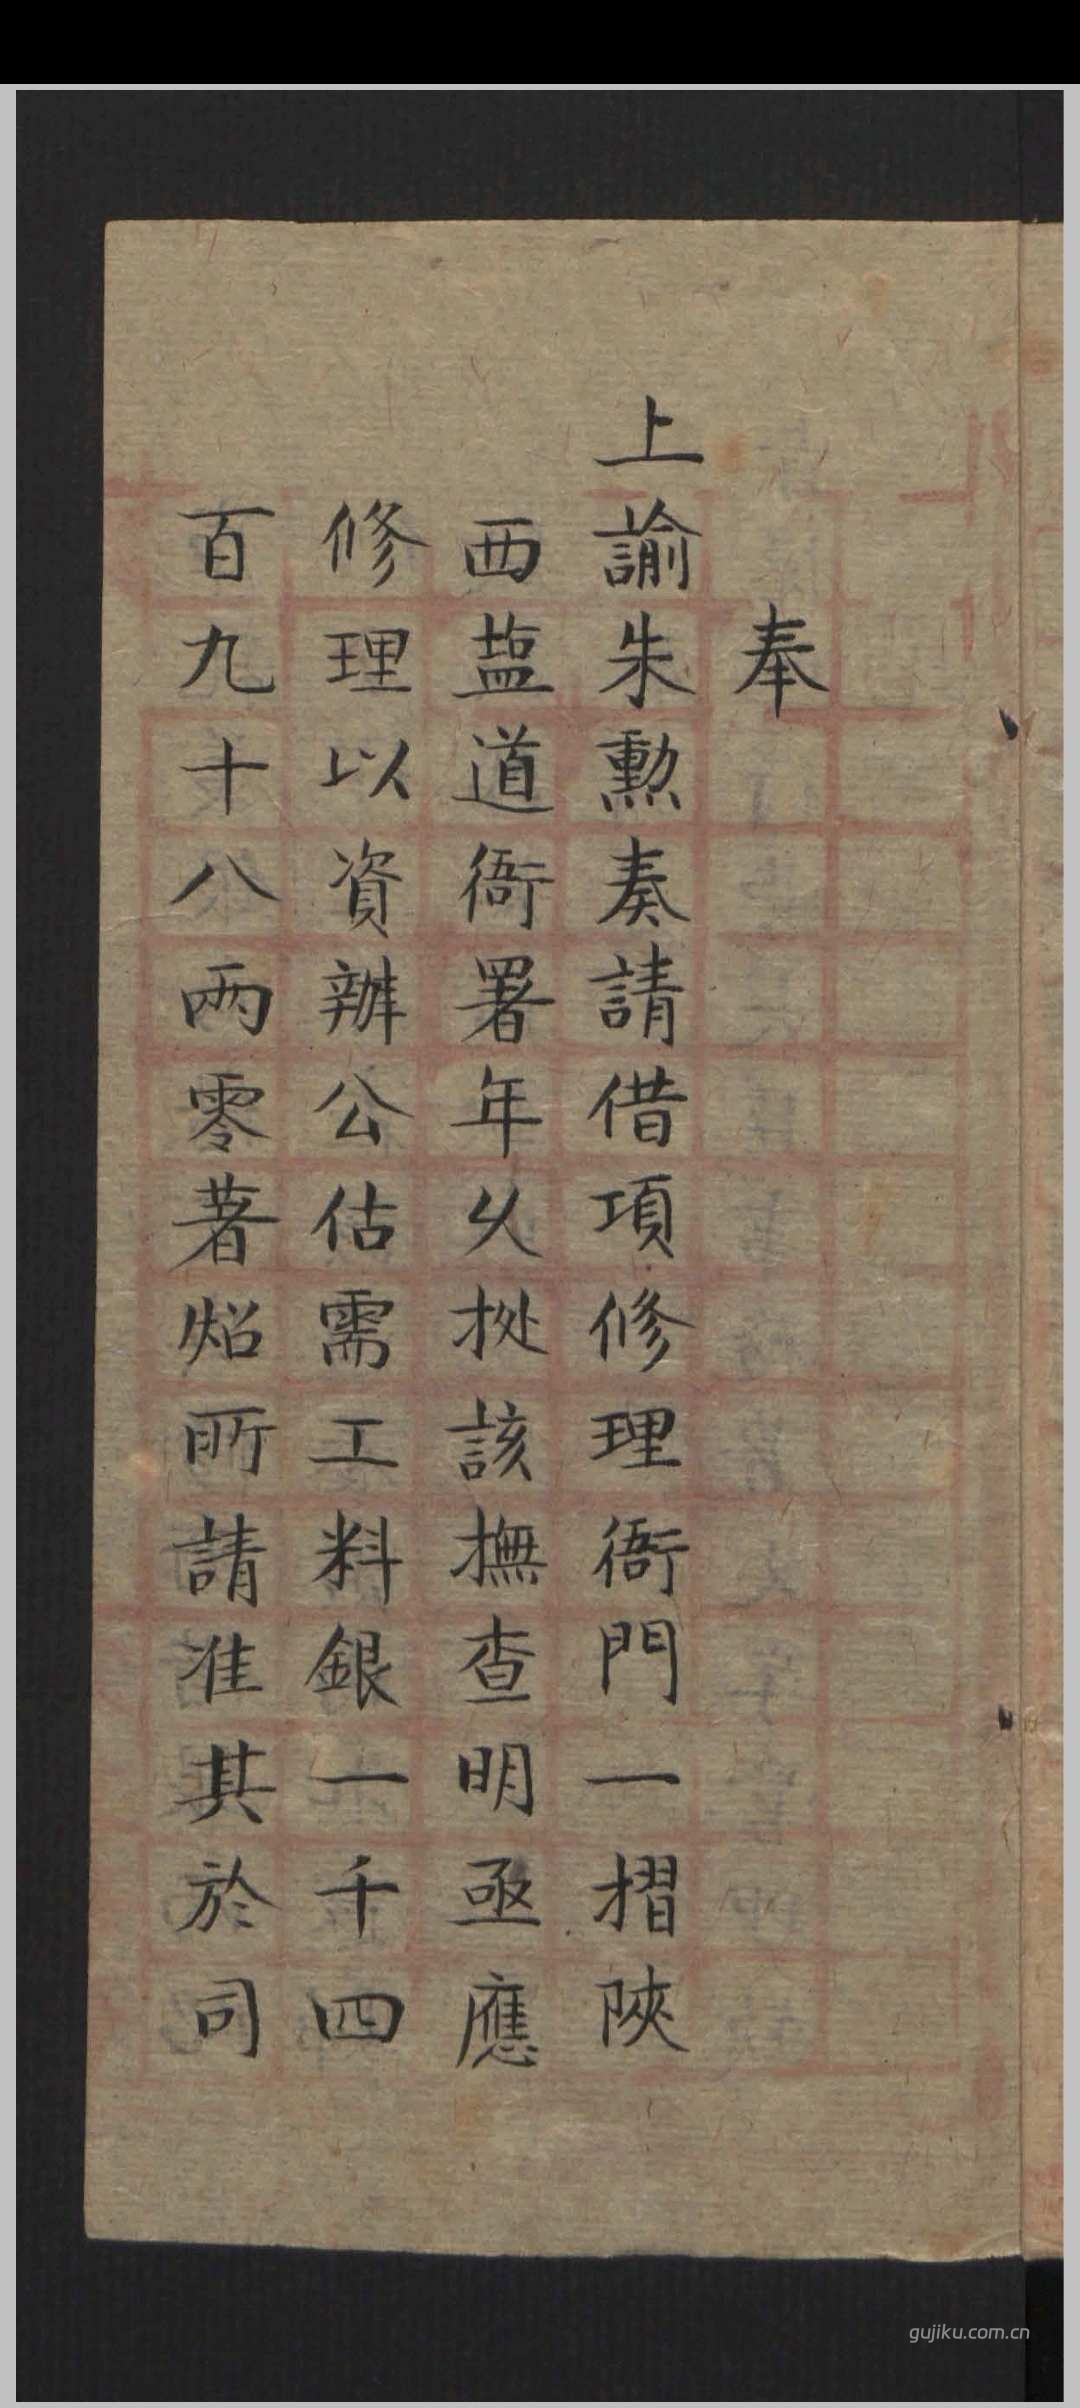 奉
上諭朱勲奏請借項修理衙門一摺陝
西塩道衙署年久拠該撫查明亟應
修理以資辦公估需工料銀一千四
百九十八兩零著炤所請准其於司
gujiku.com.cn